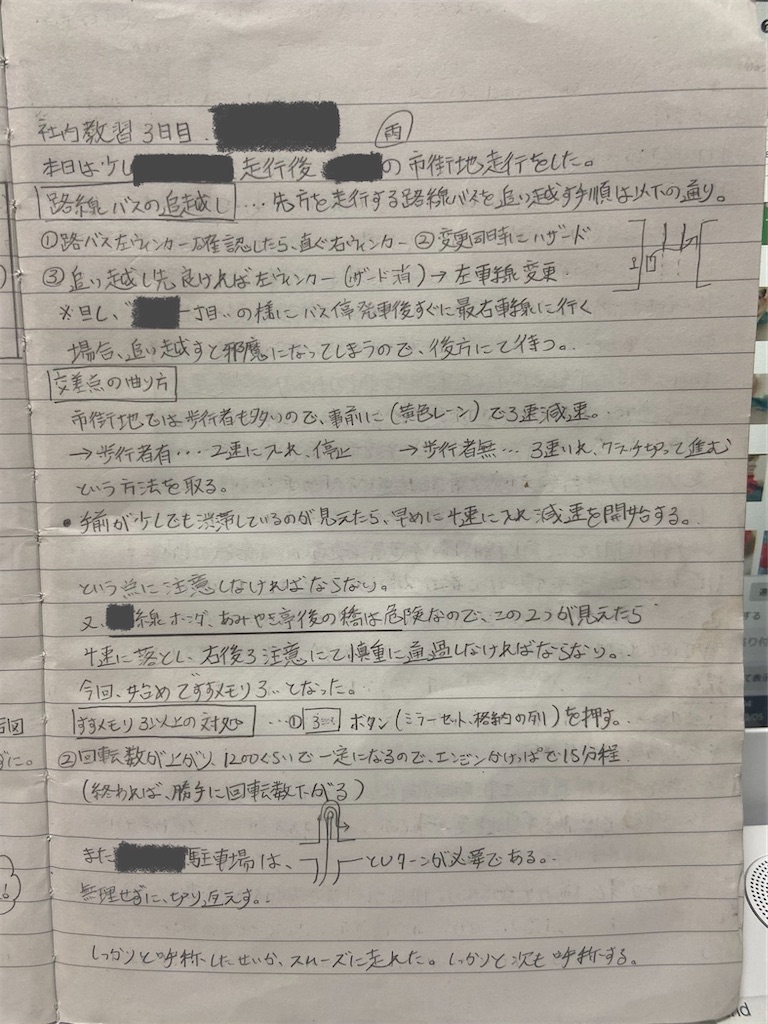 社内教習3日目. 雨
本日は少し 走行後 の市街地走行をした。
路線バスの追越し …先方を走行する路線バスを追い越す手順は以下の通り。
①路バス左ウィンカー確認したら、直ぐ右ウィンカー ②変更同時にハザード
③追い越し先良ければ左ウィンカー(ハザード消)→左車線変更.
※旦し、" 一丁目"の様にバス停発車後すぐに最右車線に行く
場合、追い越すと邪魔になってしまうので、後方にて待つ。
交差点の曲り方
市街地では歩行者も多いので、事前に(黄色レーン)で3速減速。
→歩行者有…2速に入れ、停止 →歩行者無…3速いれ、クラッチ切って進む
という方法を取る。
•手前が少しでも渋滞しているのが見えたら、早めに4速に入れ減速を開始する。
という点に注意しなければならない。
又、 線ホンダ、あみやき亭後の橋は危険なので、この2つが見えたら
4速に落とし、右後ろ注意にて慎重に通過しなければならない。
今回、始めてすすメモリ3.となった。
すすメモリ3以上の対処 …① ボタン(ミラーセット、格納の列)を押す。
②回転数が上がり、1200くらいで一定になるので、エンジンかけっぱで15分程
(終われば、勝手に回転数下がる)
また 駐車場は、 とUターンが必要である。
無理せずに、切り返えす。
しっかりと呼称したせいか、スムーズに走れた。しっかりと次も呼称する。